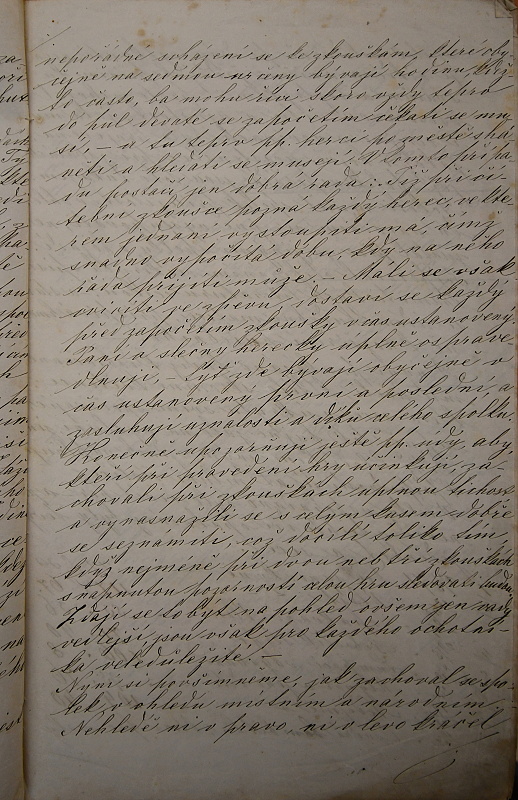 nepořádné scházení se ke zkouškám, které oby-
čejně na sedmou určeny bývají hodinu, kdež-
to často, ba mohu říci skoro vždy teprv
do půl deváté se započetím čekati se mu-
sí, – a tu teprv pp. herci po městě shá-
něti a hledati se musejí. V tomto přípa-
du postačí jen dobrá rada: Již při čí-
tební zkoušce pozná každý herec, ve kte-
rém jednání vystoupiti má, čímž
snadno vypočítá dobu, kdy na něho
řada přijíti může. – Má-li se však
cvičiti ve zpěvu, dostaví se každý
před započetím zkoušky v čas ustanovený.
Paní a slečny herečky úplně osprave-
dlňuji, – Tyť zde bývají obyčejně v
čas ustanovený první a poslední, a
zasluhují uznalosti a díků celého spolku.
Konečně upozorňuji ještě pp. údy, aby,
kteří při provedení hry účinkují, za-
chovali při zkouškách úplnou tichost
a vynasnažili se s celým kusem dobře
se seznámiti, což docílí toliko tím,
když nejméně při dvou neb tří zkouškách
s napnutou pozorností celou hru sledovati budou.
Zdají se to být na pohled ovšem jen vady
vedlejší, jsou však pro každého ochotní-
ka veledůležité. –
Nyní si povšimněme, jak zachoval se spo-
lek v ohledu místním a národním.
Nehledě ni v pravo, ni v levo kráčel